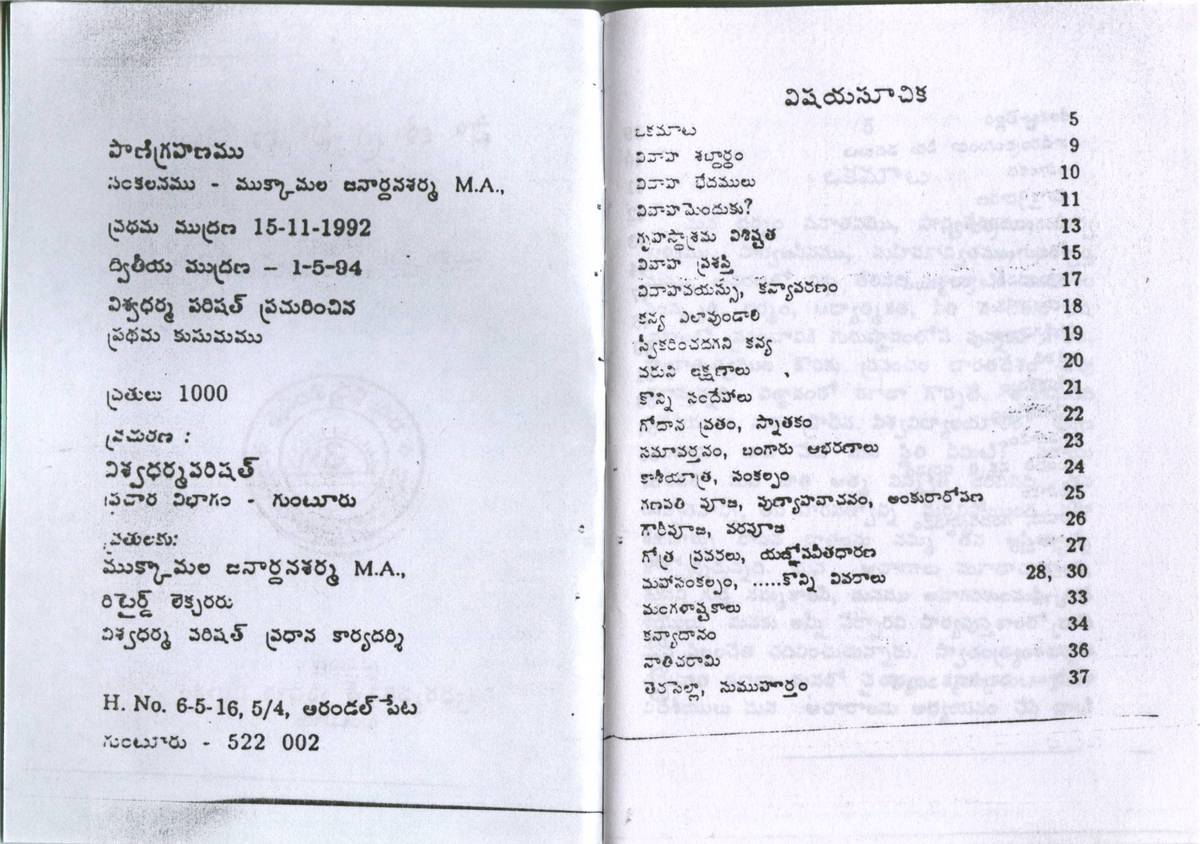 పాణిగ్రహణము
సంకలనము - ముక్కామల జనార్దనశర్మ M.A.,
ప్రథమ ముద్రణ 15-11-1992
ద్వితీయ ముద్రణ – 1-5-94
విశ్వధర్మ పరిషత్ ప్రచురించిన
ప్రథమ కుసుమము
ప్రతులు 1000
ప్రచురణ :
విశ్వధర్మపరిషత్
ప్రచార విభాగం - గుంటూరు
ప్రతులకు:
ముక్కామల జనార్దనశర్మ M.A.,
రిటైర్డ్ లెక్చరరు
విశ్వధర్మ పరిషత్ ప్రధాన కార్యదర్శి
H. No. 6-5-16, 5/4, ఆరండల్ పేట
గుంటూరు - 522 002
విషయసూచిక
ఒకమాట 5
వివాహ శబ్దార్థం 9
వివాహ భేదములు 10
వివాహమెందుకు? 11
గృహస్థాశ్రమ విశిష్టత 13
వివాహ ప్రశస్తి 15
వివాహవయస్సు, కన్యావరణం 17
కన్య ఎలావుండాలి 18
స్వీకరించదగని కన్య 19
వరుని లక్షణాలు 20
కొన్ని సందేహాలు 21
గోదాన వ్రతం, స్నాతకం 22
సమావర్తనం, బంగారు ఆభరణాలు 23
కాశీయాత్ర, సంకల్పం 24
గణపతి పూజ, పుణ్యాహవాచనం, అంకురారోపణ 25
గౌరీపూజ, వరపూజ 26
గోత్ర ప్రవరలు, యజ్ఞోపవీతధారణ 27
మహాసంకల్పం, ......కొన్ని వివరాలు 28, 30
మంగళాష్టకాలు 33
కన్యాదానం 34
నాతిచరామి 36
తెరసెల్లా, సుముహూర్తం 37